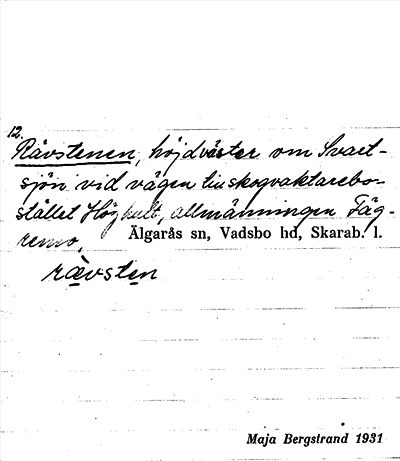 12.
Rävstenen, höjd väster om Svart-
sjön vid vägen till skogvaktarebo-
stället Höghult, allmänningen Fäg-
remo, Älgarås sn, Vadsbo hd, Skarab. l.
rævsten
Maja Bergstrand 1931